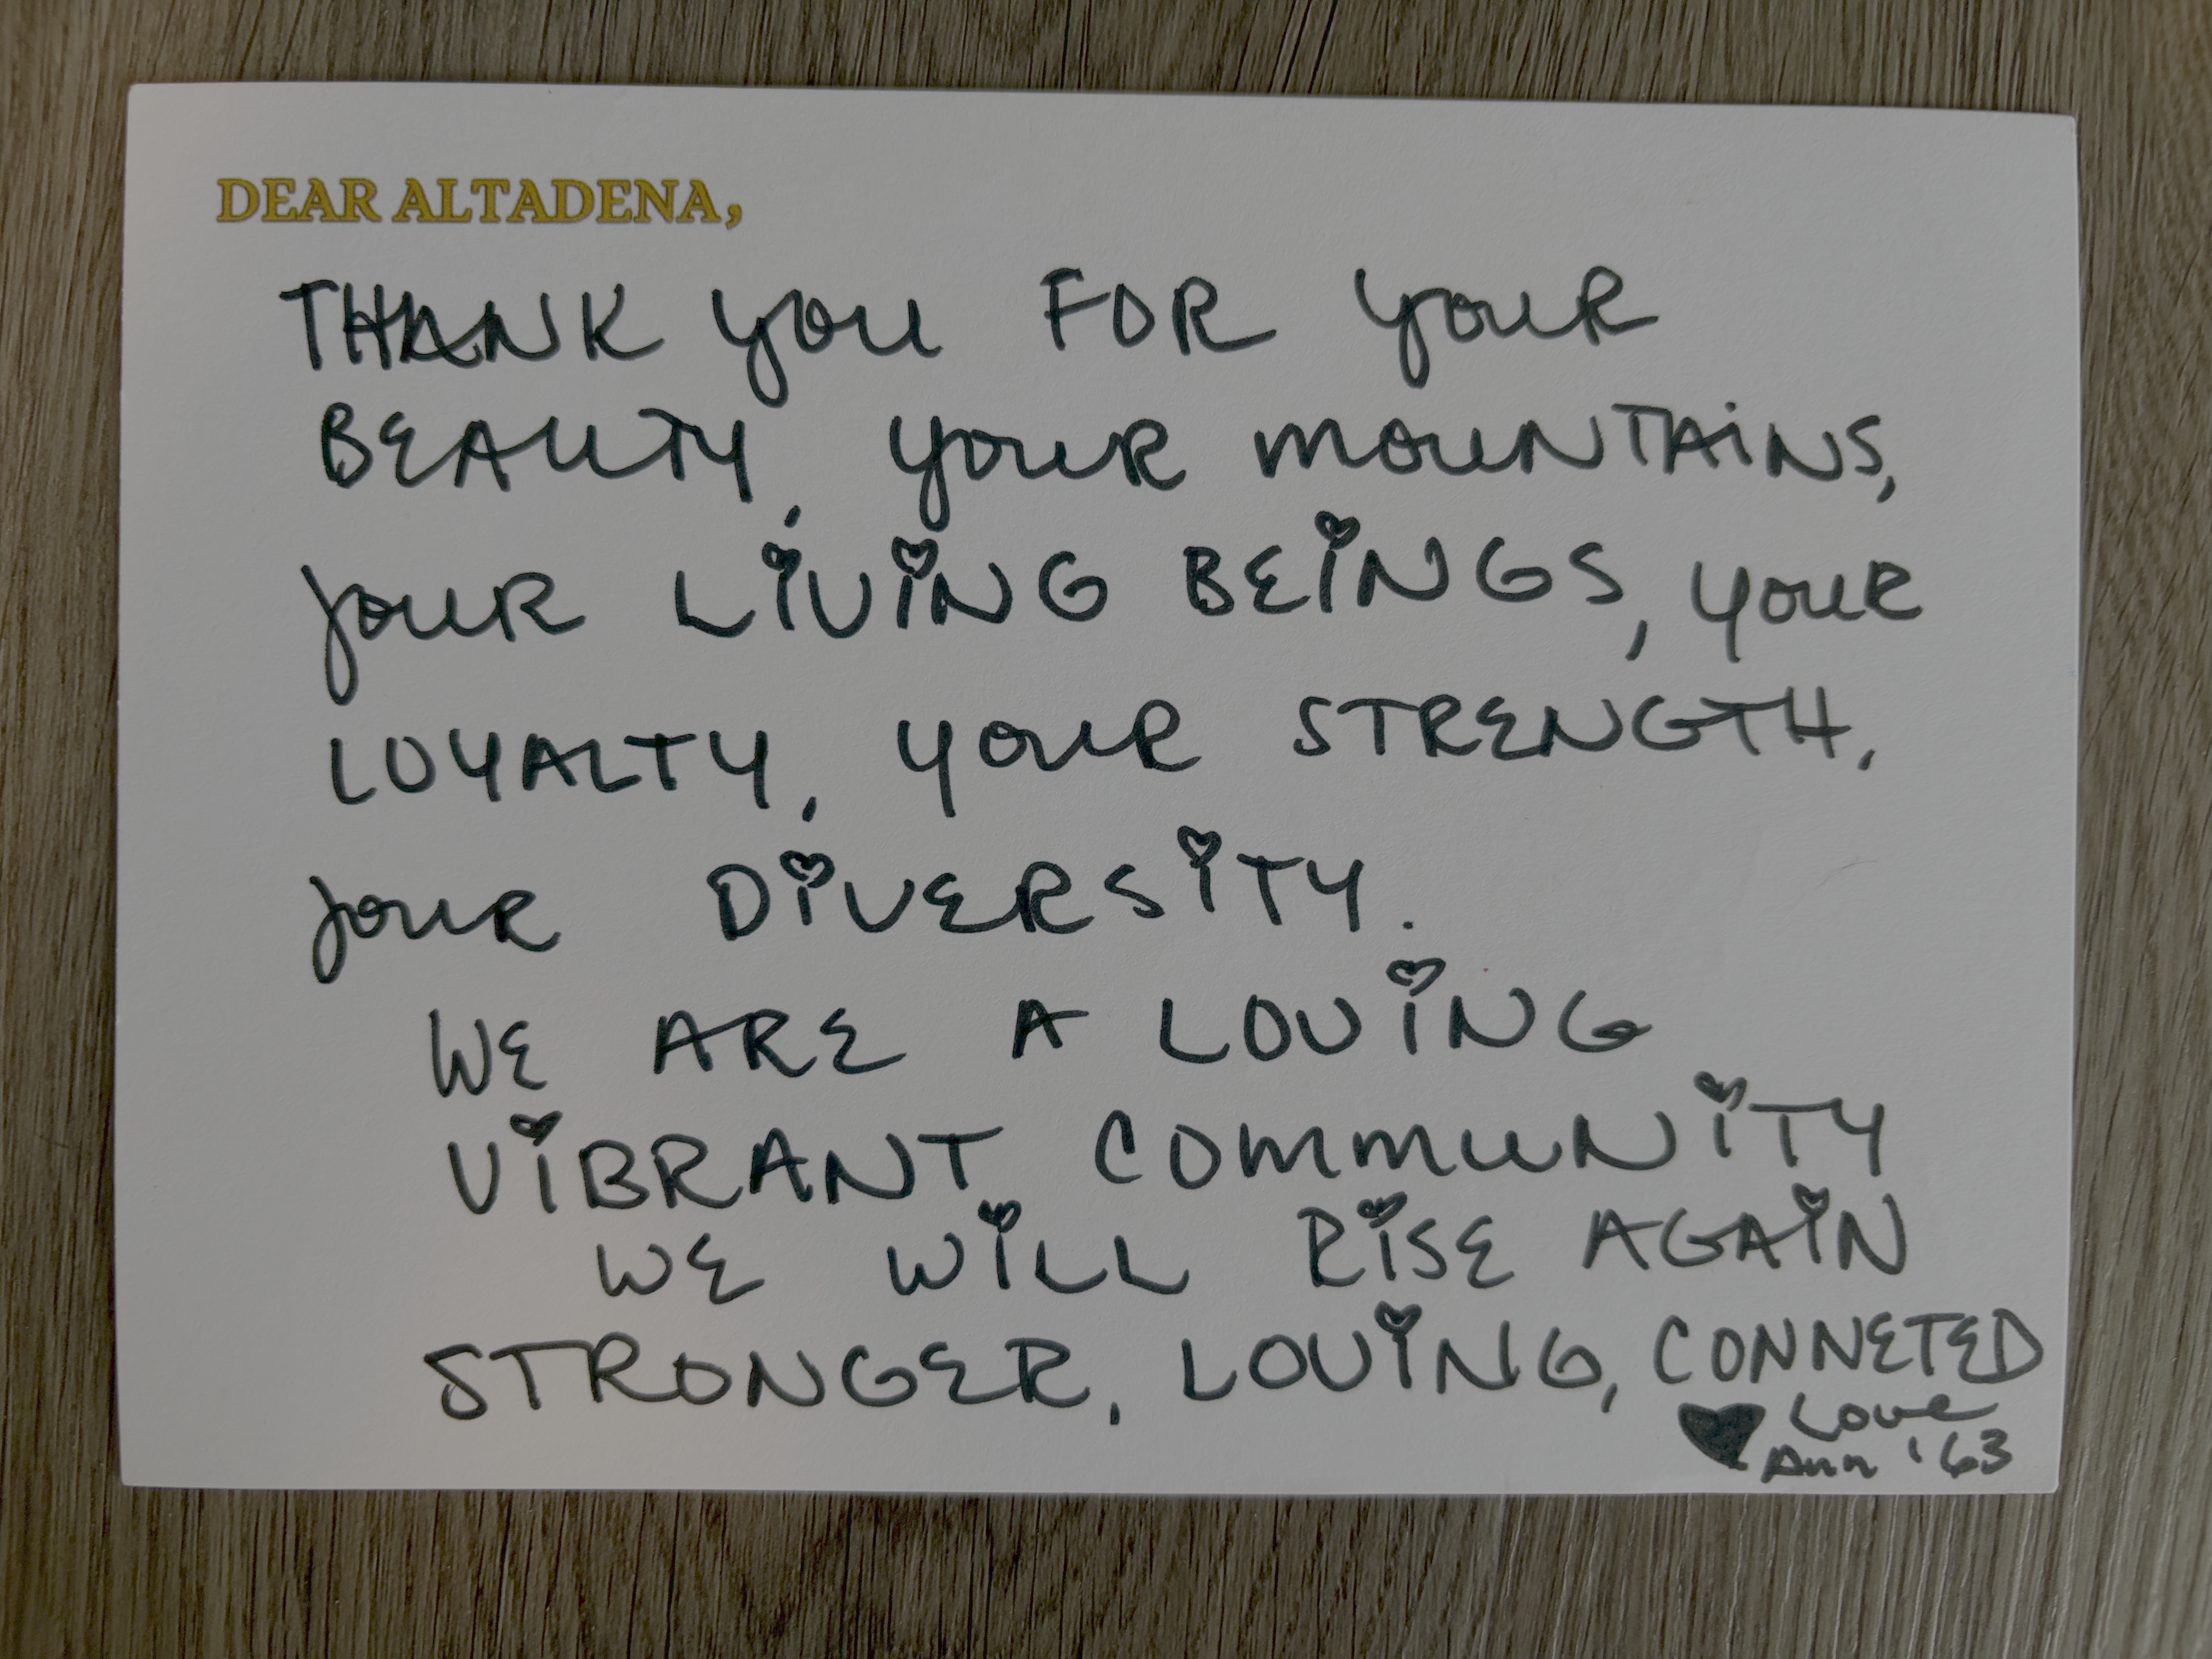 DEAR ALTADENA,
THANK you FOR youR
BEAUTY, youR mOuNTAiNS,
youR LiViNG BEiNGS, youR
LOYALTY, youR STRENGTH,
youR DiVERSiTY.
WE ARE A LOViNG
ViBRANT COmmuNiTY
WE WiLL RiSE AGAiN
STRONGER, LOViNG, CONNETED
♥ Love
Ann '63